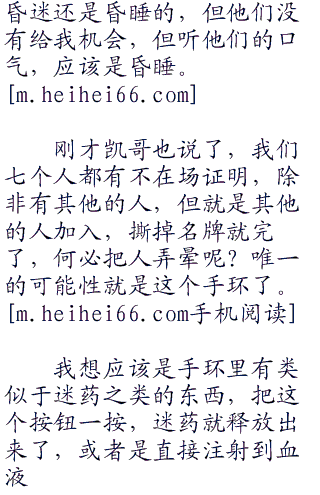 昏迷还是昏睡的，但他们没
有给我机会，但听他们的口
气，应该是昏睡。
[m.heihei66.com]
刚才凯哥也说了，我们
七个人都有不在场证明，除
非有其他的人，但就是其他
的人加入，撕掉名牌就完
了，何必把人弄晕呢？唯一
的可能性就是这个手环了。
[m.heihei66.com手机阅读]
我想应该是手环里有类
似于迷药之类的东西，把这
个按钮一按，迷药就释放出
来了，或者是直接注射到血
液